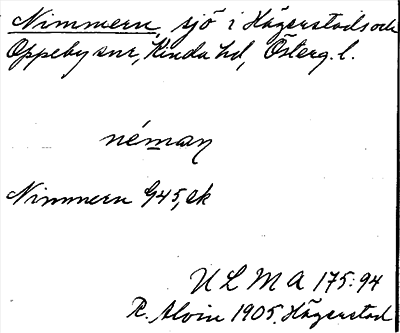 Nimmern, sjö i Hägerstads och
Oppeby snr, Kinda hd, Österg. l.
néman
Nimmern G45, ek
U L M A 175:94
R. Alvin 1905. Hägerstad